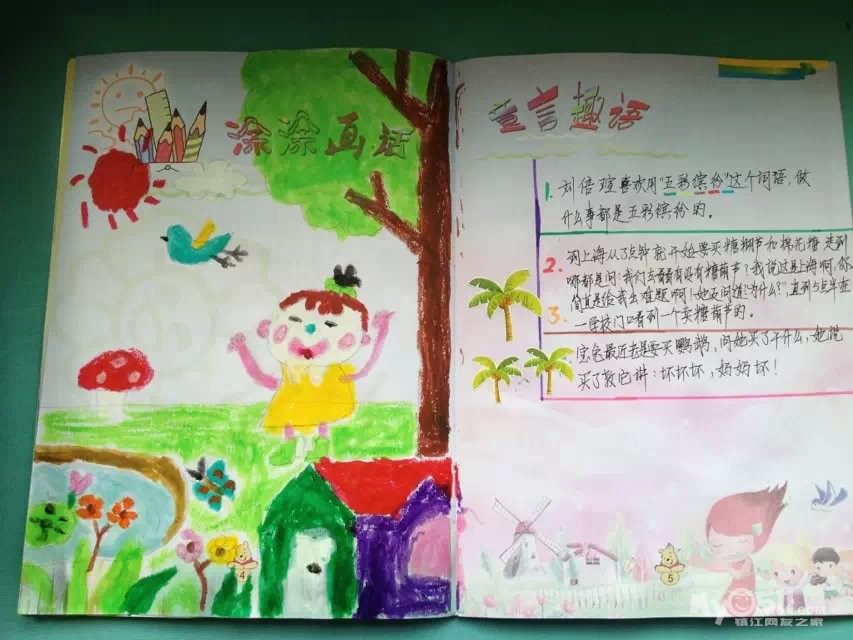 涂涂画话
童言趣语
1. 刘倍瑄喜欢用“五彩缤纷”这个词语，做
什么事都是五彩缤纷的。
2. 到上海从了点钟就开始要买糖葫芦和棉花糖 走到
哪都是问：我们去看有没有糖葫芦？我说这是上海啊，你
简直是给我出难题啊！她还问道：为什么？”直到5点半在
3. 一学校门口看到一个卖糖葫芦的。
宝兔最近老是要买鹦鹉，问她买了干什么，她说
买了教它讲：坏坏坏，妈妈坏！
5
my0511.com
镇江网友之家